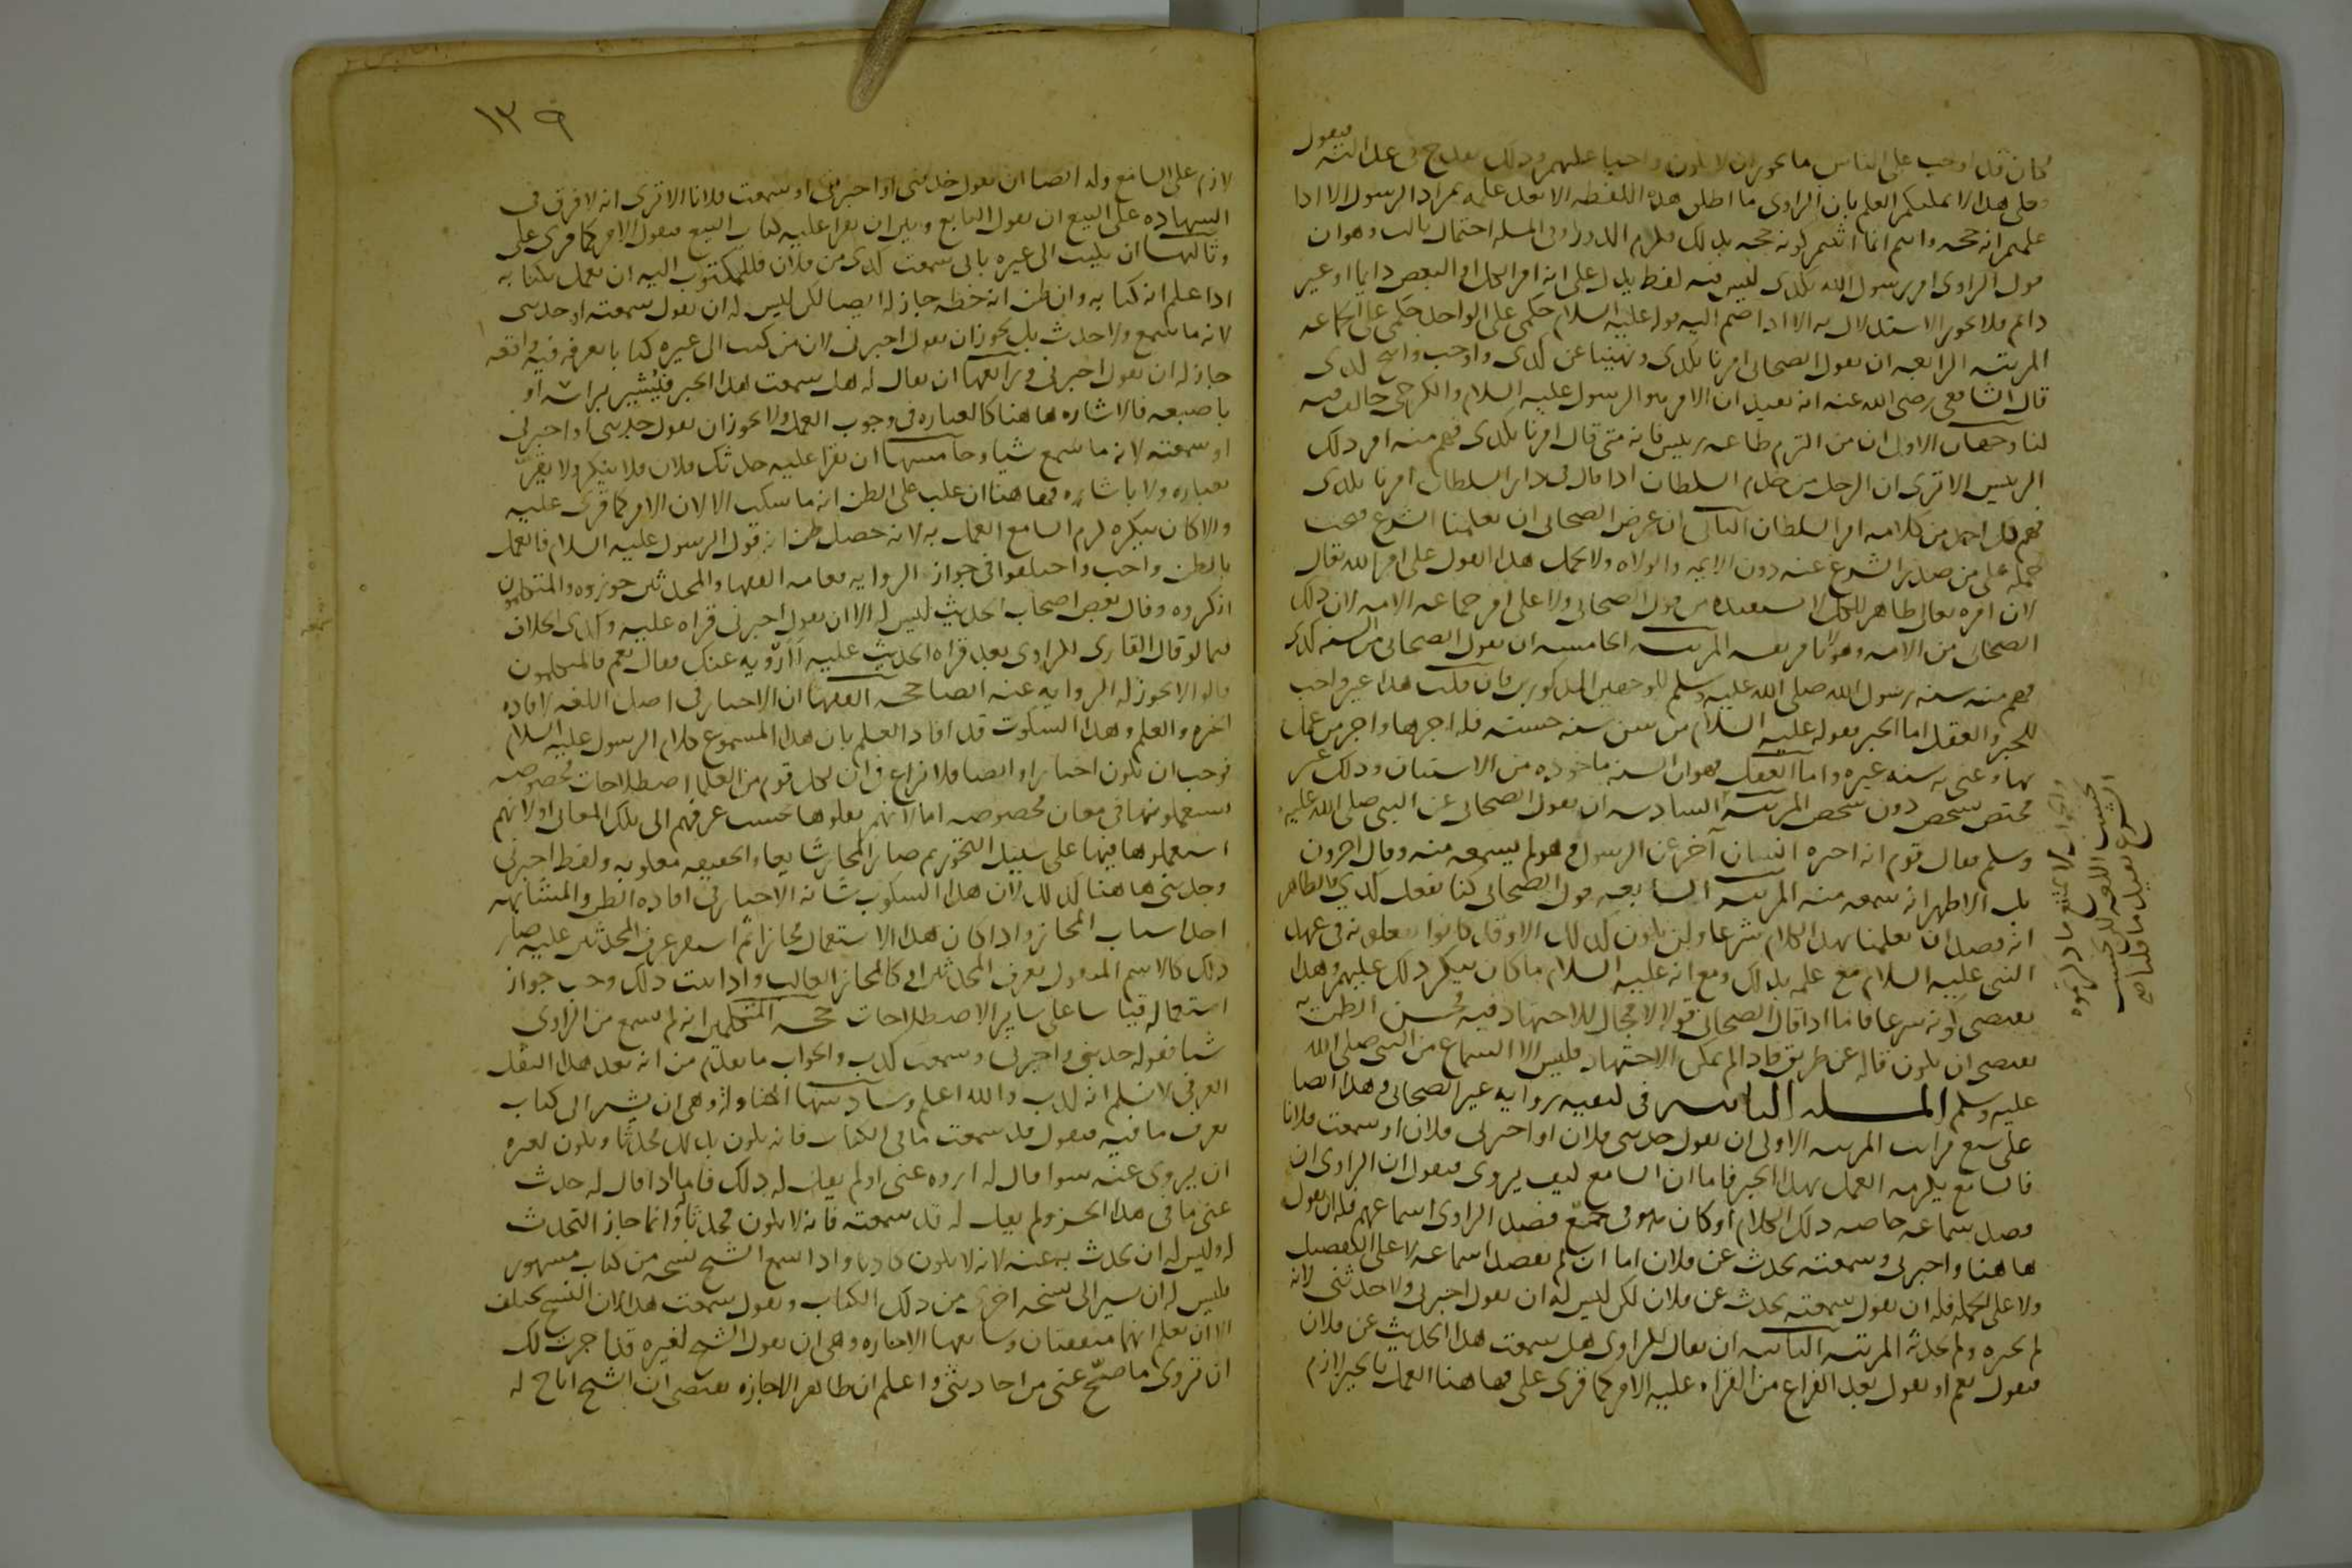 فيقول
فكان قد اوجب على الناس ما يجوز ان لا يكون واجبا عليهم وذلك يقدح في عدالته
وعلى هذا لا يمكنكم العلم بان الراوي ما اطلق هذه اللفظة الا بعد علمه بمراد الرسول الا اذا
علمتم انه حجه وانتم انما اثبتم كونه حجه بذلك فيلزم الدور وفي المسله احتمال ثالث وهو ان
قول الراوي امر رسول الله بكذى ليس فيه لفظ يدل على انه امر الكل او البعض دايما او غير
دايم فلا يجوز الاستدلال به الا اذا ضم اليه قوله عليه السلام حكمي على الواحد حكمي على الجماعه
المرتبه الرابعه ان يقول الصحابي امرنا بكذى ونهينا عن كذى واوجب وابيح كذى
قال الشافعي رضي الله عنه انه يفيد ان الامر هو الرسول عليه السلام والكرخي خالف فيه
لنا وجهان الاول ان من التزم طاعه رييس فانه متى قال امرنا بكذى فهم منه امر ذلك
الرييس الا ترى ان الرجل من خدم السلطان اذا قال في دار السلطان امرنا بكذى
فهم كل احد من كلامه امر السلطان الثاني ان غرض الصحابي ان يعلمنا الشرع فيجب
حمله على من صدر الشرع عنه دون الايمه والولاه ولا يحمل هذا القول على امر الله تعالى
لان امره تعالى ظاهر للكل لا يستفيده من قول الصحابي ولا على امر جماعه الامه لان ذلك
الصحابي من الامه وهو لا يامر نفسه المرتبه الخامسه ان يقول الصحابي من السنه كذى
فهم منه سنه رسول الله صلى الله عليه وسلم للوجهين المذكورين فان قلت هذا غير واجب
للخبر والعقل اما الخبر فقوله عليه السلام من سن سنه حسنه فله اجرها واجر من عمل
بها وعنى به سنه غيره واما العقل فهو ان السنه ماخوذه من الاستنان وذلك غير
مختص بشخص دون شخص المرتبه السادسه ان يقول الصحابي عن النبي صلى الله عليه
وسلم فقال قوم انه اخبره انسان آخر عن الرسول وهو لم يسمعه منه وقال اخرون
بل الاظهر انه سمعه منه المرتبه السابعه قول الصحابي كنا نفعل كذى فالظاهر
انه قصد ان يعلمنا بهذا الكلام شرعا ولن يكون كذلك الا وقد كانوا يفعلونه في عهد
النبي عليه السلام مع علمه بذلك ومع انه عليه السلام ما كان ينكر ذلك عليهم وهذا
يقتضي كونه شرعا فاما اذا قال الصحابي قولا لا مجال للاجتهاد فيه فحسن الظن به
يقتضي ان يكون قاله عن طريق فاذا لم يمكن الاجتهاد فليس الا السماع من النبي صلى الله
عليه وسلم المسله الثانيه في كيفيه روايه غير الصحابي وهذا ايضا
على سبع مراتب المرتبه الاولى ان يقول حدثني فلان او اخبرني فلان او سمعت فلانا
فالسامع يلزمه العمل بهذا الخبر فاما ان السامع كيف يروي فيقول ان الراوي ان
قصد سماعه خاصه ذلك الكلام او كان هو في جمع قصد الراوي اسماعهم فله ان يقول
هاهنا واخبرني وسمعته يحدث عن فلان اما ان لم يقصد اسماعه لا على التفصيل
ولا على الجمله فله ان يقول سمعته يحدث عن فلان لكن ليس له ان يقول اخبرني ولا حدثني لانه
لم يخبره ولم يحدثه المرتبه الثانيه ان يقال للراوي هل سمعت هذا الحديث عن فلان
فيقول نعم او يقول بعد الفراغ من القراه عليه الامر كما قرى علي فهاهنا العمل بالخبر لازم
والجواب لا يمتنع ما ذكرتموه
بحسب اللغه لكن بحسب
الشرع يفيد ما قلناه صح
١٣٩
لازم على السامع وله ايضا ان يقول حدثني او اخبرني او سمعت فلانا الا ترى انه لا فرق في
الشهاده على البيع ان يقول البايع وبين ان يقرا عليه كتاب البيع فيقول الامر كما قرى علي
وثالثها ان يكتب الى غيره باني سمعت كذى من فلان فللمكتوب اليه ان يعمل بكتابه
اذا علم انه كتابه وان ظن انه خطه جاز له ايضا لكن ليس له ان يقول سمعته او حدثني
لانه ما سمع ولا حدث بل يجوز ان يقول اخبرني لان من كتب الى غيره كتابا يعرفه فيه واقعه
جاز له ان يقول اخبرني ورابعها ان يقال له هل سمعت هذا الخبر فيشير براسه او
باصبعه فالاشاره هاهنا كالعباره في وجوب العمل ولا يجوز ان يقول حدثني او اخبرني
او سمعته لانه ما سمع شيا وخامسها ان يقرا عليه حدثك فلان فلا ينكر ولا يقر
بعباره ولا باشاره فهاهنا ان غلب على الظن انه ما سكت الا لان الامر كما قرى عليه
والا كان ينكره لزم السامع العمل به لانه حصل ظن انه قول الرسول عليه السلام فالعمل
بالظن واجب واختلفوا في جواز الروايه فعامه الفقها والمحدثين جوزوه والمتكلمون
انكروه وقال بعض اصحاب الحديث ليس له الا ان يقول اخبرني قراه عليه وكذى الخلاف
فيما لو قال القاري للراوي بعد قراه الحديث عليه أأرويه عنك فقال نعم فالمتكلمون
قالوا لا يجوز له الروايه عنه ايضا حجه الفقها ان الاخبار في اصل اللغه لافاده
الخبر والعلم وهذا السكوت قد افاد العلم بان هذا المسموع كلام الرسول عليه السلام
فوجب ان يكون اخبارا وايضا فلا نزاع في ان لكل قوم من العلما اصطلاحات مخصوصه
يستعملونها في معان مخصوصه اما لانهم نقلوها بحسب عرفهم الى تلك المعاني او لانهم
استعملوها فيها على سبيل التجوز ثم صار المجاز شايعا والحقيقه مغلوبه ولفظ اخبرني
وحدثني هاهنا كذلك لان هذا السكوت شابه الاخبار في افاده الظن والمشابهه
احد اسباب المجاز واذا كان هذا الاستعمال مجازا ثم استقر عرف المحدثين عليه صار
ذلك كالاسم المنقول بعرف المحدثين او كالمجاز الغالب واذا ثبت ذلك وجب جواز
استعماله قياسا على ساير الاصطلاحات حجه المتكلمين انه لم يسمع من الراوي
شيا فقوله حدثني واخبرني وسمعت كذب والجواب ما تقدم من انه بعد هذا النقل
العرفي لا نسلم انه كذب والله اعلم وسادسها المناوله وهي ان يشير الى كتاب
يعرف ما فيه فيقول قد سمعت ما في الكتاب فانه يكون بذلك محدثا ويكون لغيره
ان يروي عنه سوا قال له اروه عني او لم يقل له ذلك فاما اذا قال له حدث
عني ما في هذا الجزو ولم يقل له قد سمعته فانه لا يكون محدثا وانما جاز التحدث
له وليس له ان يحدث به عنه لانه لا يكون كاذبا واذا سمع الشيخ نسخه من كتاب مشهور
فليس له ان يشير الى نسخه اخرى من ذلك الكتاب ويقول سمعت هذا لان النسخ تختلف
الا ان يعلم انهما متفقتان وسابعها الاجازه وهي ان يقول الشيخ لغيره قد اجزت لك
ان تروي ما صح عني من احاديثي واعلم ان ظاهر الاجازه يقتضي ان الشيخ اباح له